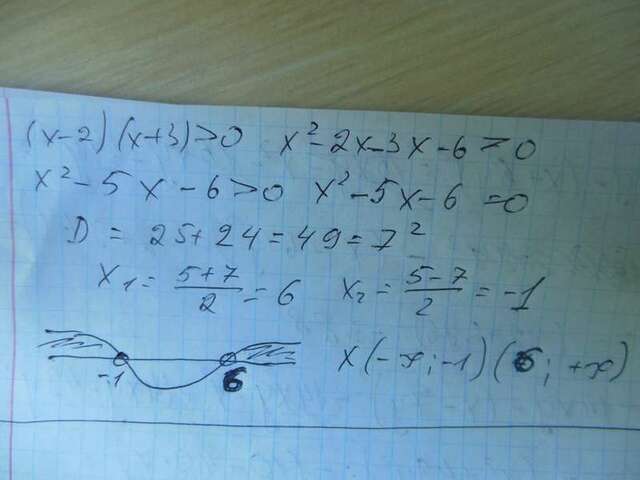 (x-2)(x+3)>0 x²-2x-3x-6>0
x²-5x-6>0 x²-5x-6=0
D=25+24=49=7²
x₁=\frac{5+7}{2}=6 x₂=\frac{5-7}{2}=-1
-1 6 x(-∞;-1)(6;+∞)